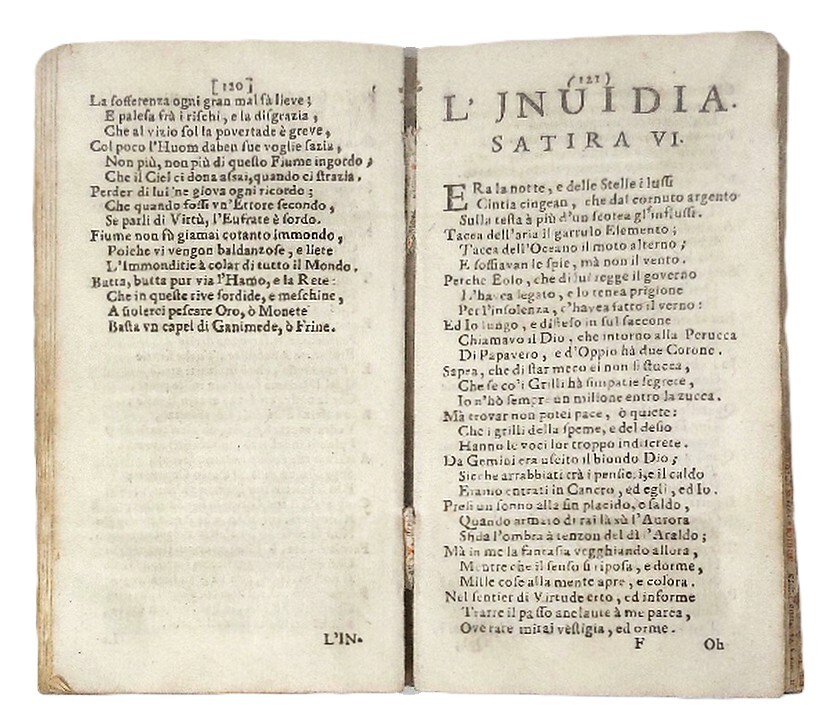 [120]
La sofferenza ogni gran mal fà lieve;
E palesa frà i rischi, e la disgrazia,
Che al vizio sol la povertade è greve,
Col poco l'Huom daben sue voglie sazia,
Non più, non più di questo Fiume ingordo,
Che il Ciel ci dona assai, quando ci strazia.
Perder di lui ne giova ogni ricordo;
Che quando fossi vn'Ettore secondo,
Se parli di Virtù, l'Eufrate è sordo.
Fiume non fù giamai cotanto immondo,
Poiche vi vengon baldanzose, e liete
L'Immonditie à colar di tutto il Mondo.
Butta, butta pur via l'Hamo, e la Rete:
Che in queste rive sordide, e meschine,
A solerci pescare Oro, ò Monete
Basta vn capel di Ganimede, ò Frine.
L'IN-
(121)
L' JNUIDIA.
SATIRA VI.
ERa la notte, e delle Stelle i lussi
Cintia cingean, che dal cornuto argento
Sulla testa à più d'un scotea gl'influssi.
Tacea dell'aria il garrulo Elemento;
Tacea dell'Oceano il moto alterno;
E soffiavan le spie, mà non il vento.
Perche Eolo, che di lui regge il governo
L'havea legato, e lo tenea prigione
Per l'insolenza, c'havea fatto il verno:
Ed Io lungo, e disteso in sul saccone
Chiamavo il Dio, che intorno alla Perucca
Di Papavero, e d'Oppio hà due Corone.
Sapea, che di star meco ei non si stucca,
Che se co'i Grilli hà simpatie segrete,
Io n'hò sempre un milione entro la zucca.
Mà trovar non potei pace, ò quiete:
Che i grilli della speme, e del desio
Hanno le voci lor troppo indiscrete.
Da Gemini era uscito il biondo Dio;
Sicche arrabbiati trà i pensieri, e il caldo
Eramo entrati in Cancro, ed egli, ed Io.
Presi un sonno alla fin placido, e saldo,
Quando armato di rai là sù l'Aurora
Sfida l'ombra à tenzon del dì l'Araldo;
Mà in me la fantasia vegghiando allora,
Mentre che il senso si riposa, e dorme,
Mille cose alla mente apre, e colora.
Nel sentier di Virtude erto, ed informe
Trarre il passo anelante à me parea,
Ove rare mirai vestigia, ed orme.
F
Oh